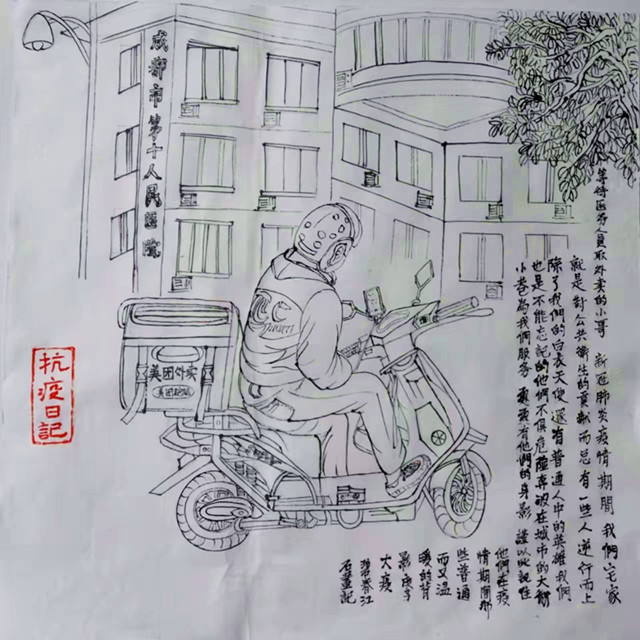 成都市第十人民医院
等待医务人員取外卖的小哥 新冠肺炎疫情期間 我們宅家
就是對公共衛生的貢献 而总有一些人逆行而上
除了我們的白衣天使還有普通人中的英雄我們
也是不能忘記的他們不惧危險穿梭在城市的大街
小巷為我們服务 有他們的身影 謹以此記住
他們在疫
情期間那
些普通
而又温
暖的背
影庚子
大疫
春江
石畫記
美团外卖
抗疫日記